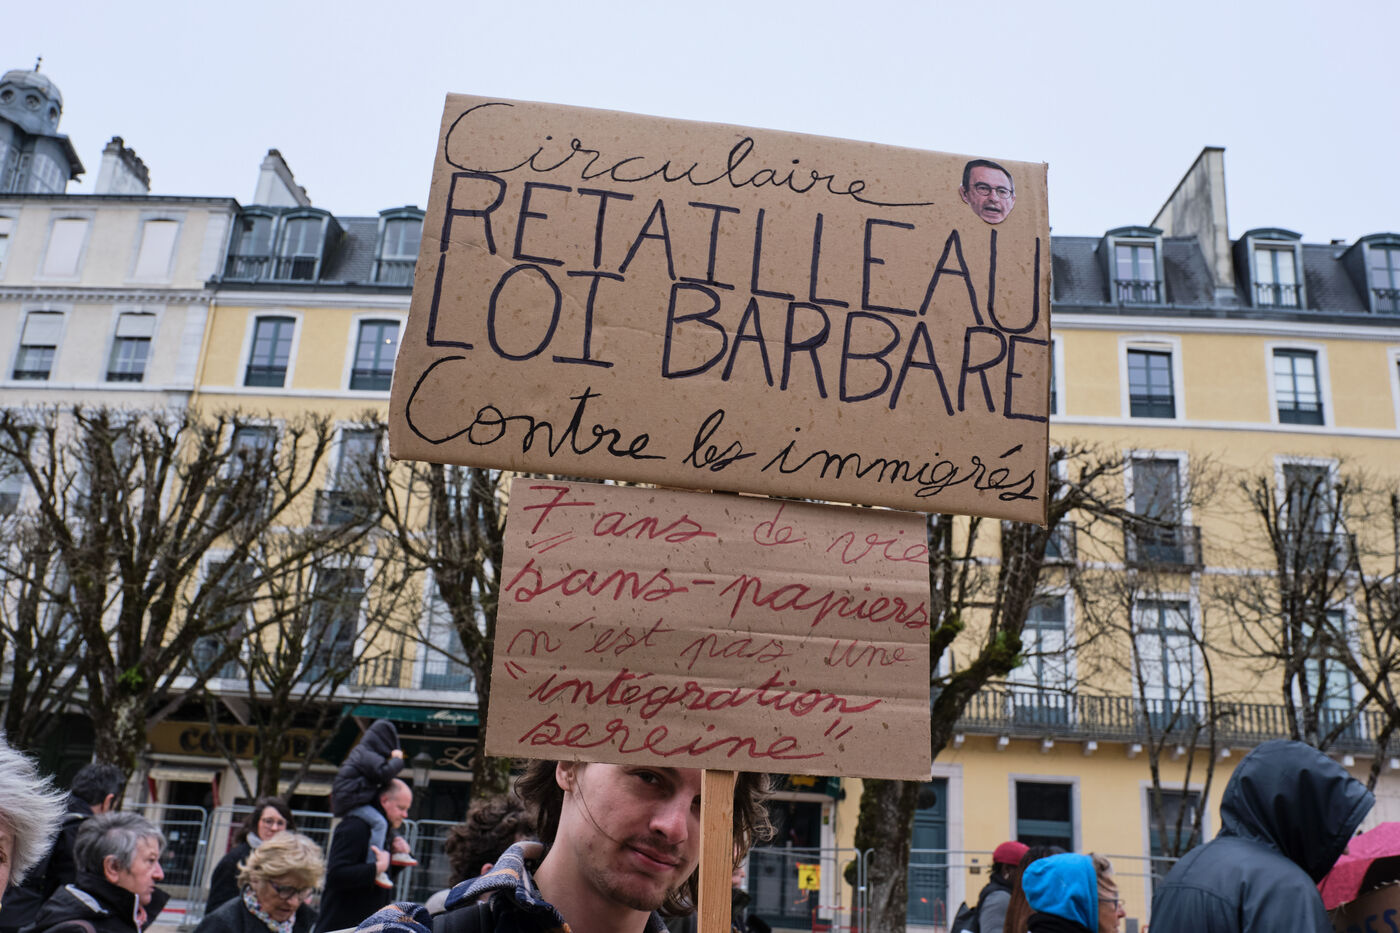 Circulaire
RETAILLEAU
LOI BARBARE
Contre les immigrés
7 ans de vie
"sans-papiers
n'est pas une
"intégration
sereine"
COIFFEUR